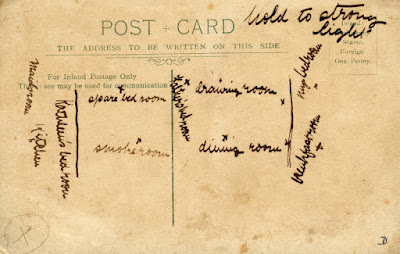 hold to strong
light.
POST CARD
THE ADDRESS TO BE WRITTEN ON THIS SIDE
Inland
Stamp
Foreign
One Penny.
For Inland Postage Only
may be used for communication
Maids room
Kitchen
Kathleen's bed room
spare bed room
smoke room
bed room
drawing room
dining room
my bed room
breakfast room
X
D